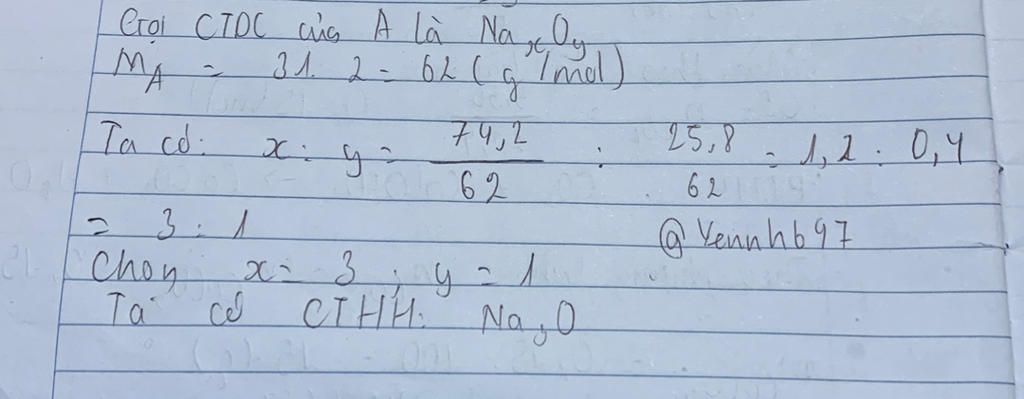 Gọi CTDC của A là NaxOy
MA = 31. 2 = 62 (g/mol)
Ta có: x : y = 74,2/62 : 25,8/62 = 1,2 : 0,4
= 3 : 1
@Yennhb97
Chọn x = 3 ; y = 1
Ta có CTHH: Na3O